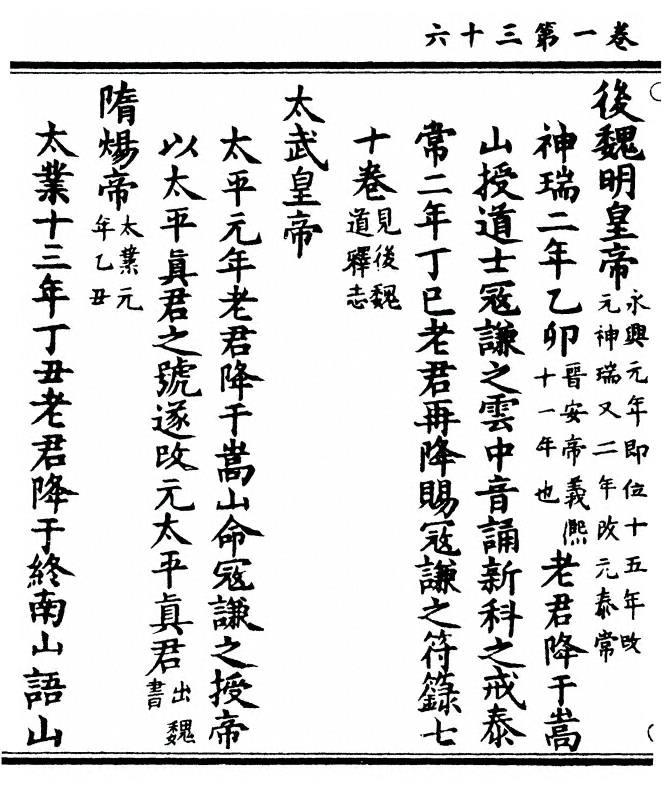 六十三第一卷
後魏明皇帝永興元年即位十五年改元神瑞又二年改元泰常
神瑞二年乙卯晉安帝義熈十一年也老君降于嵩
山授道士寇謙之雲中音誦新科之戒泰
常二年丁巳老君再降賜寇謙之符籙七
十卷見後魏道釋志
太武皇帝
太平元年老君降于嵩山命寇謙之授帝
以太平眞君之號遂改元太平眞君出魏書
隋煬帝太業元年乙丑
太業十三年丁丑老君降于終南山語山